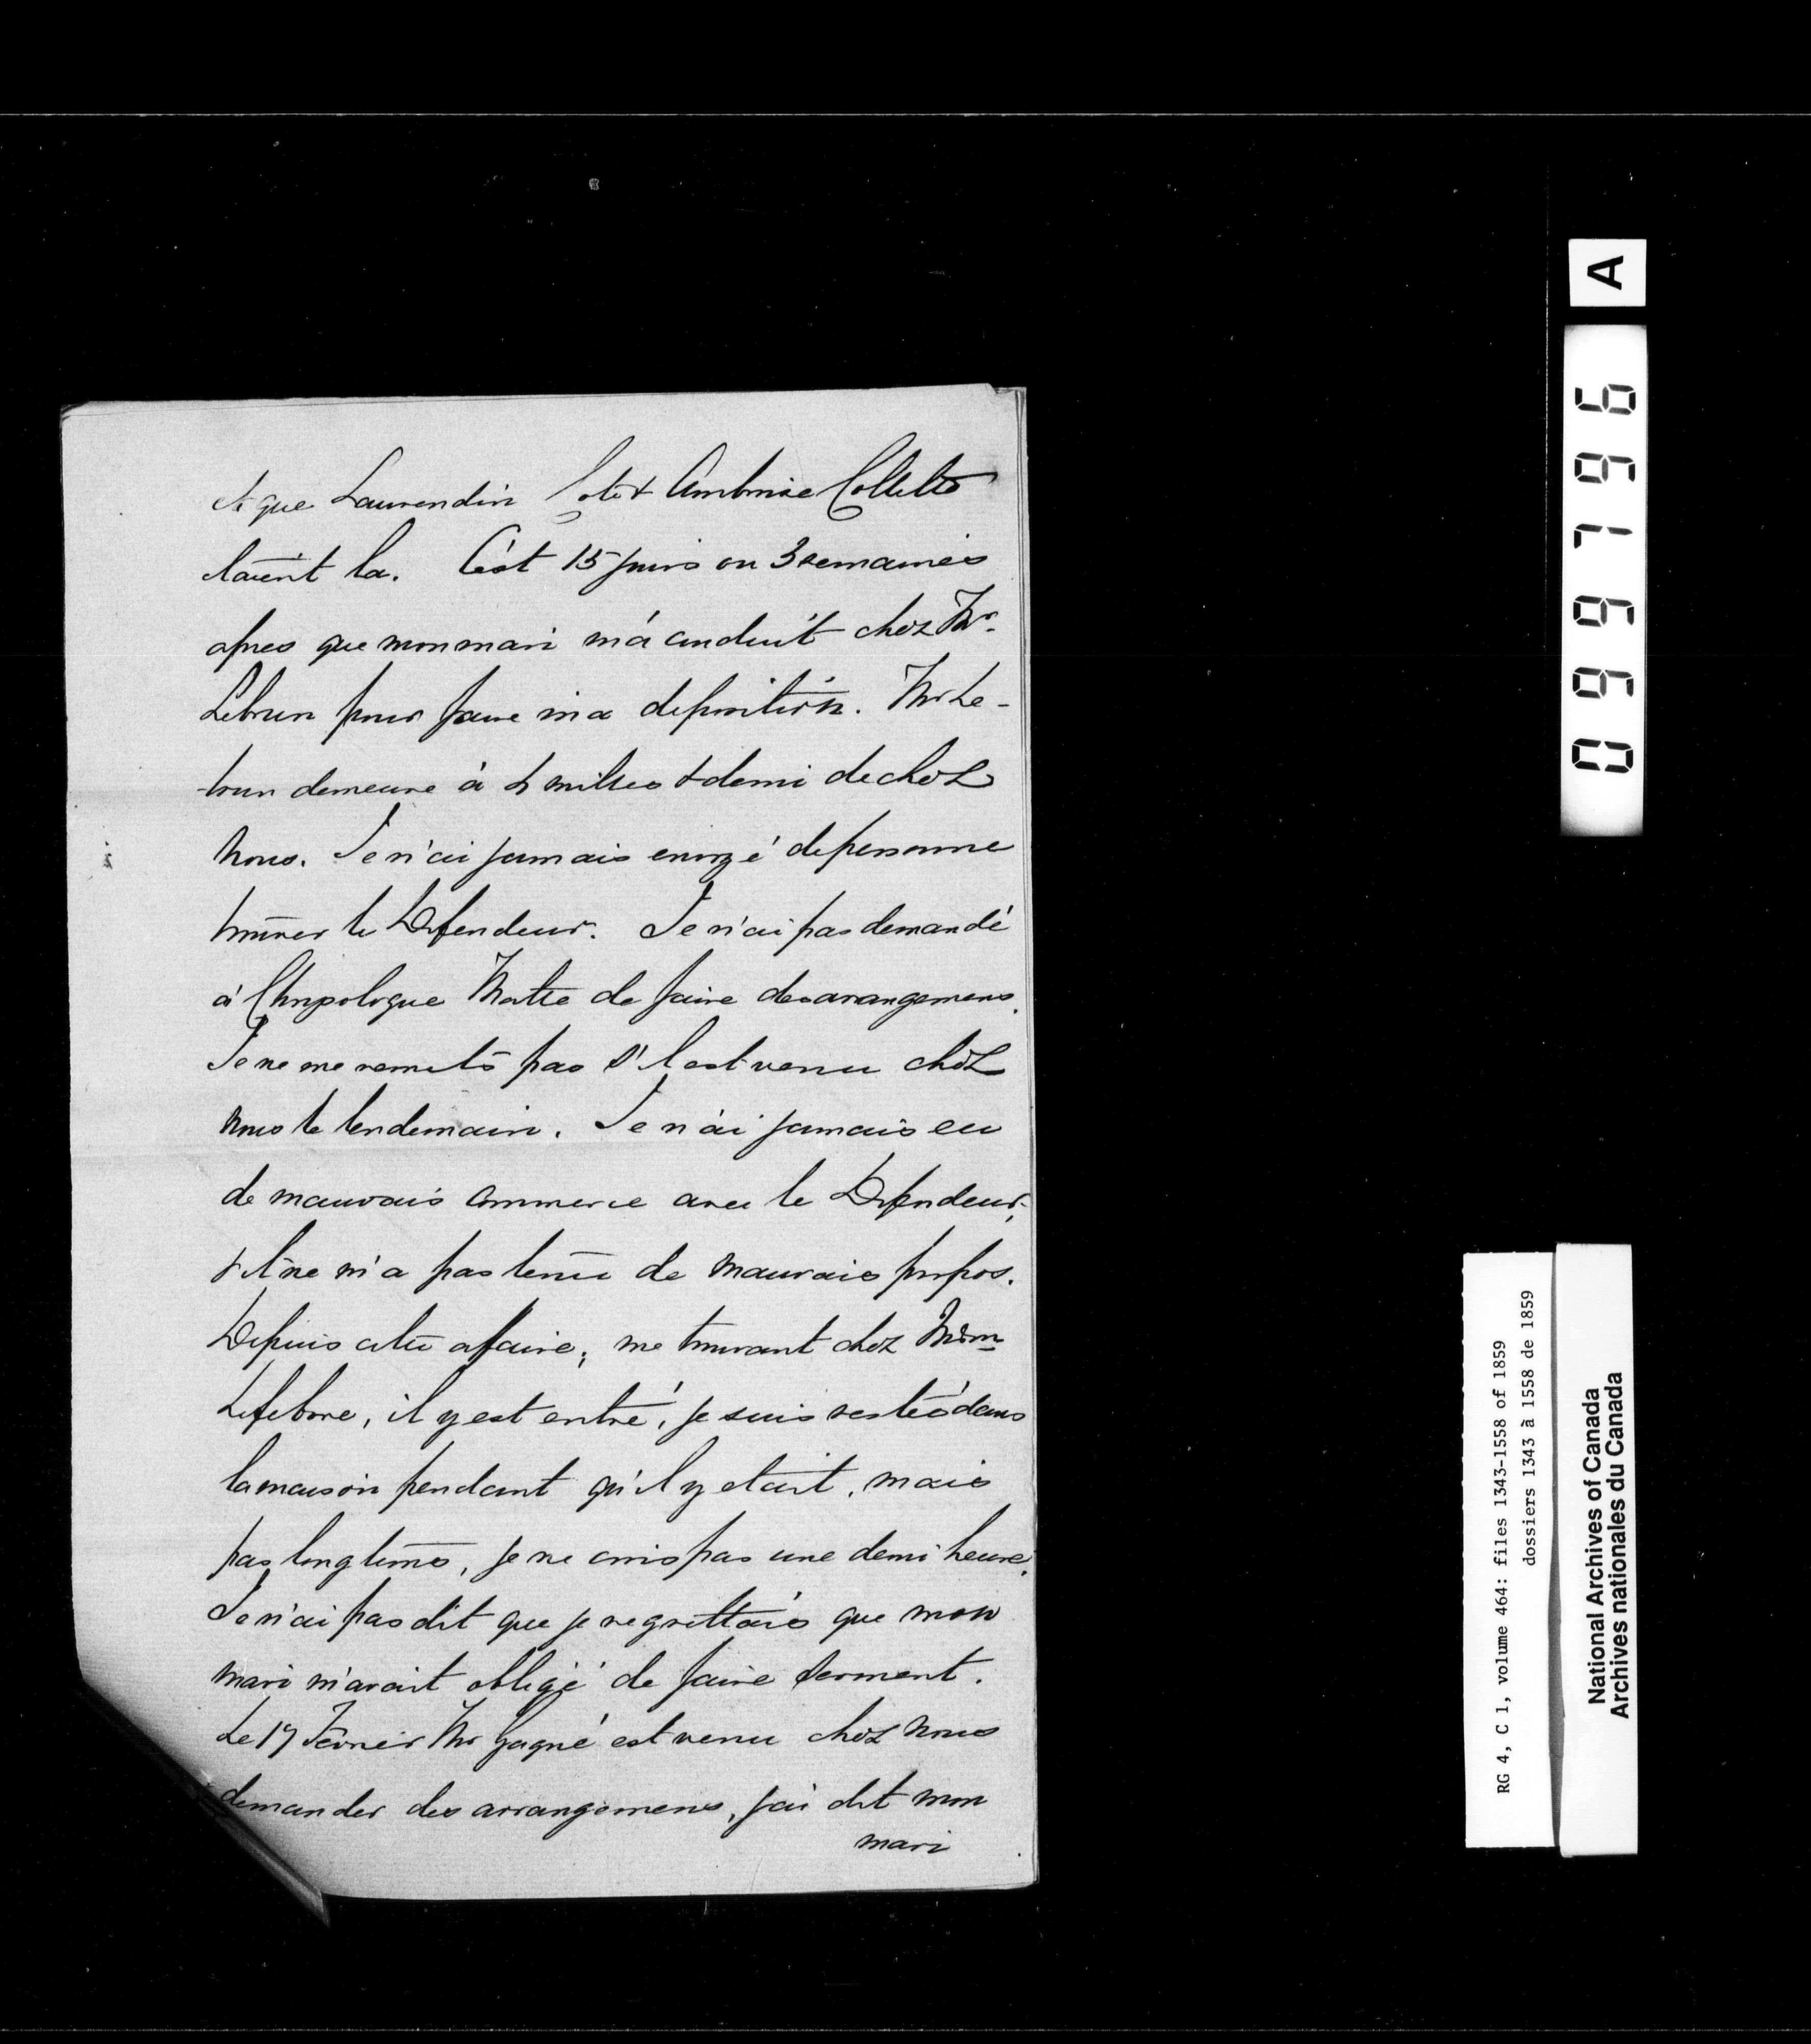 et que Laurendin Coté & Ambroise Collette
etaient la. C'est 15 jours ou 3 semaines
apres que mon mari m'a conduit chez Mr.
Lebrun pour faire ma deposition. Mr Le-
brun demeure à milles & demi de chez
nous. Je n'ai jamais envoyé de personne
trouver le Defendeur. Je n'ai pas demandé
à Matte de faire des arangemens.
Je ne me remets pas s'il est venu chez
nous le lendemain. Je n'ai jamais eu
de mauvais commerce avec le Defendeur,
& il ne m'a pas tenu de mauvais propos.
Depuis cette affaire, me trouvant chez Mdme
Lefebvre, il y est entré, je suis restée dans
la maison pendant qu'il y etait, mais
pas longtems, je ne crois pas une demi heure.
Je n'ai pas dit que je regrettais que mon
mari m'avait obligé de faire serment.
Le 17 Fevrier Mr Gagné est venu chez nous
demander des arrangemens, j'ai dit mon
mari
A
099796
RG 4, C 1, volume 464: files 1343-1558 of 1859
dossiers 1343 à 1558 de 1859
National Archives of Canada
Archives nationales du Canada